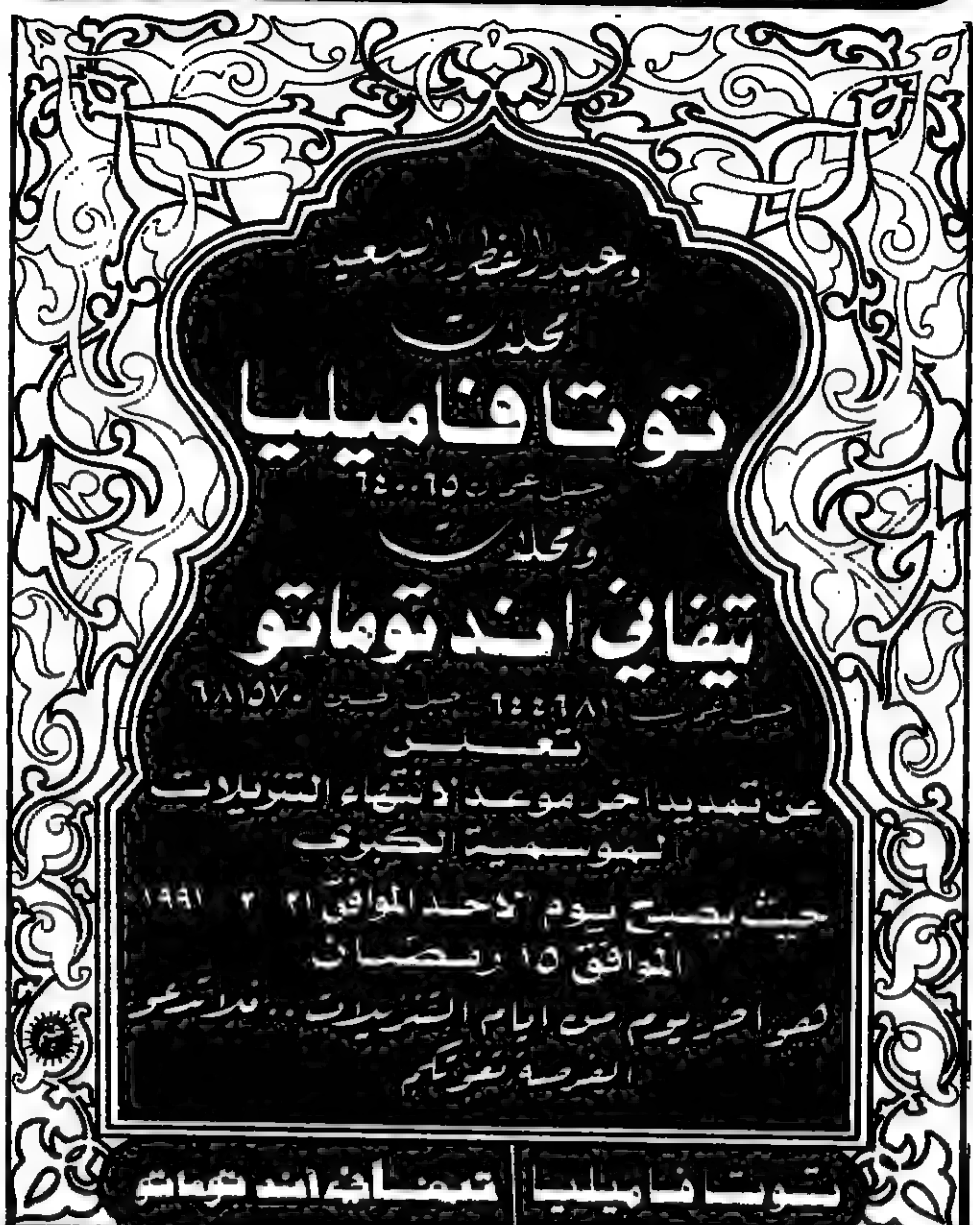 وعيد الفطر السعيد
محلات
توتا فاميليا
جبل عمان ٦٤٠٠٦٥
ومحلات
تيفاني اند توماتو
٦٤٤٦٨١ جبل الحسين ٦٨١٥٧٠
تعلن
عن تمديد اخر موعد لانتهاء التنزيلات
الموسمية الكبرى
حيث يصبح يوم الاحد الموافق ٣١ ٣ ١٩٩١
الموافق ١٥ رمضان
هو اخر يوم من ايام التنزيلات .. فلا تدعو
الفرصة تفوتكم
توتا فاميليا
تيفاني اند توماتو